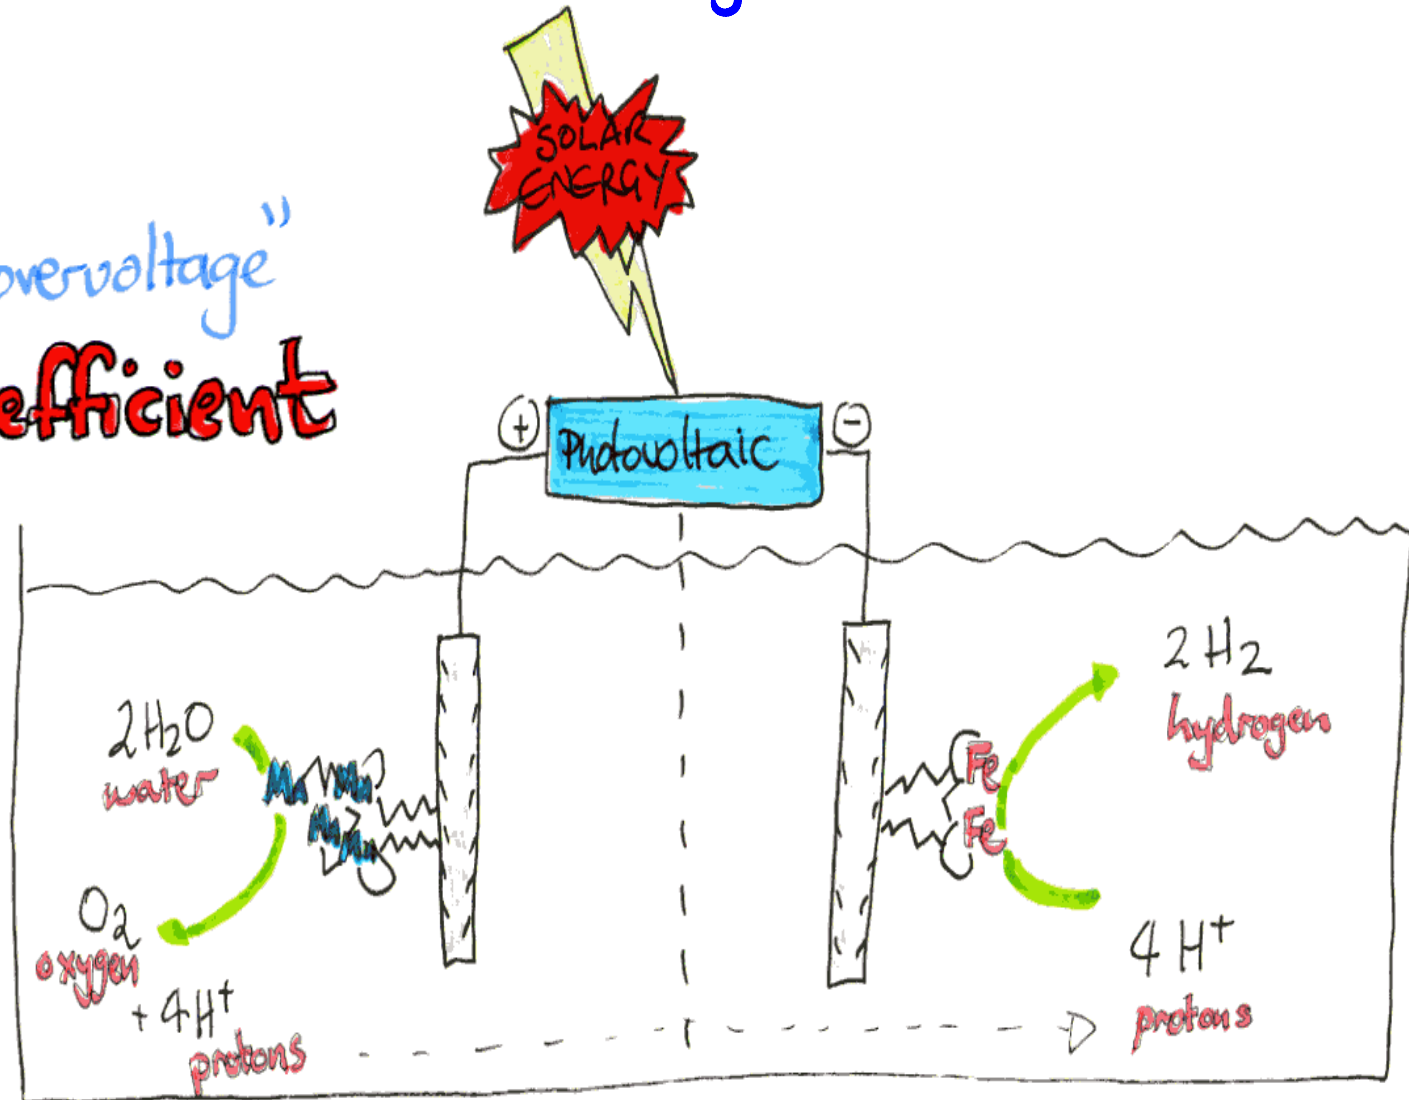 SOLAR
ENERGY
overvoltage"
efficient
+
Photovoltaic
-
2H₂O
water
Mn Mn
Mn
Mn
O₂
oxygen
+ 4H⁺
protons
Fe
Fe
2H₂
hydrogen
4H⁺
protons